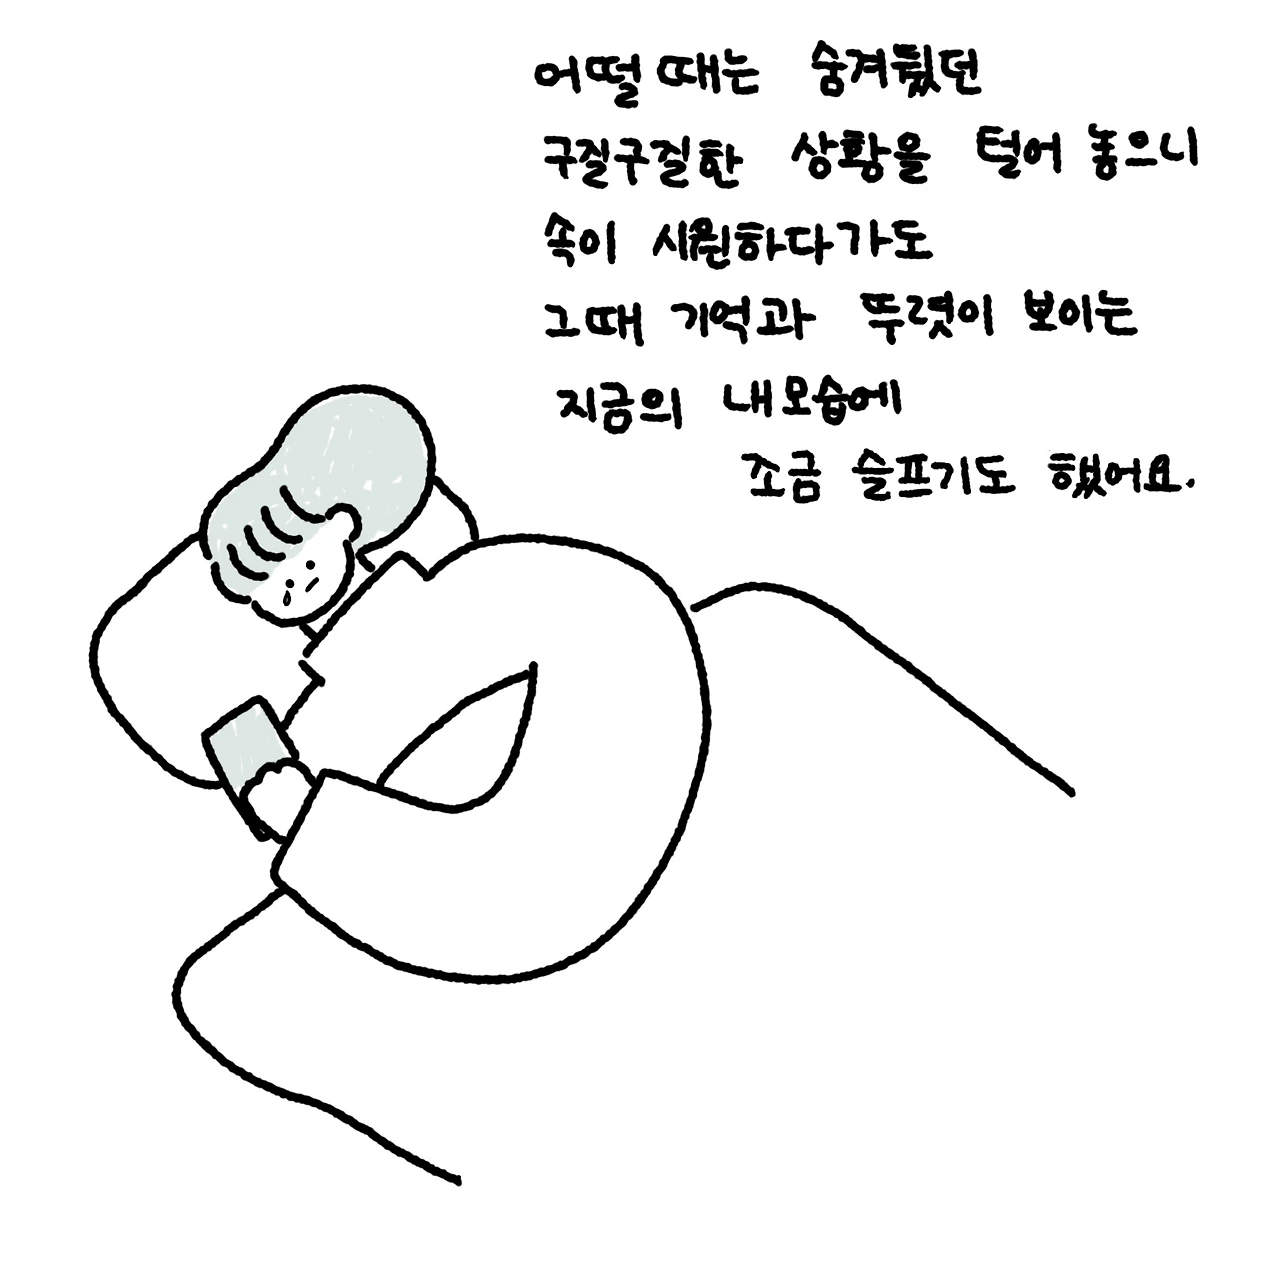 어떨 때는 숨겨뒀던
구질구질한 상황을 털어 놓으니
속이 시원하다가도
그때 기억과 뚜렷이 보이는
지금의 내모습에
조금 슬프기도 했어요.